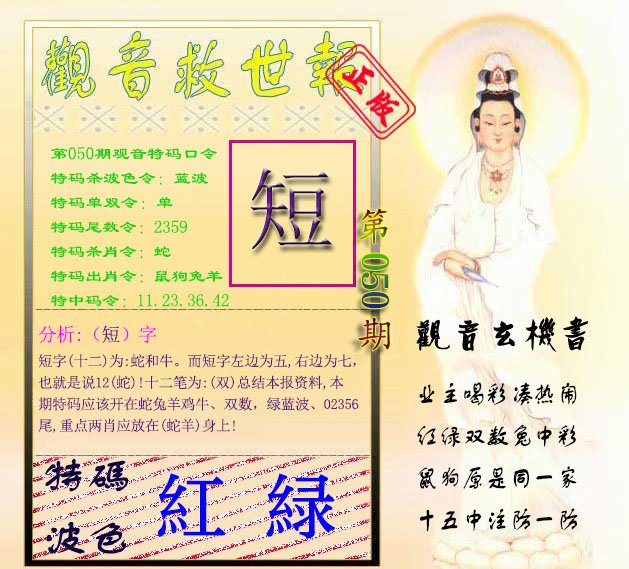 觀音救世報
正版
第050期观音特码口令
特码杀波色令: 蓝波
特码单双令: 单
特码尾数令: 2359
特码杀肖令: 蛇
特码出肖令: 鼠狗兔羊
特中码令: 11.23.36.42
短
第050期
分析:（短）字
短字(十二)为:蛇和牛。而短字左边为五,右边为七,
也就是说12(蛇)!十二笔为:(双)总结本报资料,本
期特码应该开在蛇兔羊鸡牛、双数，绿蓝波、02356
尾,重点两肖应放在(蛇羊)身上!
特碼
波色
紅 緑
觀音玄機書
业主喝彩凑热闹
红绿双数兔中彩
鼠狗原是同一家
十五中注防一防